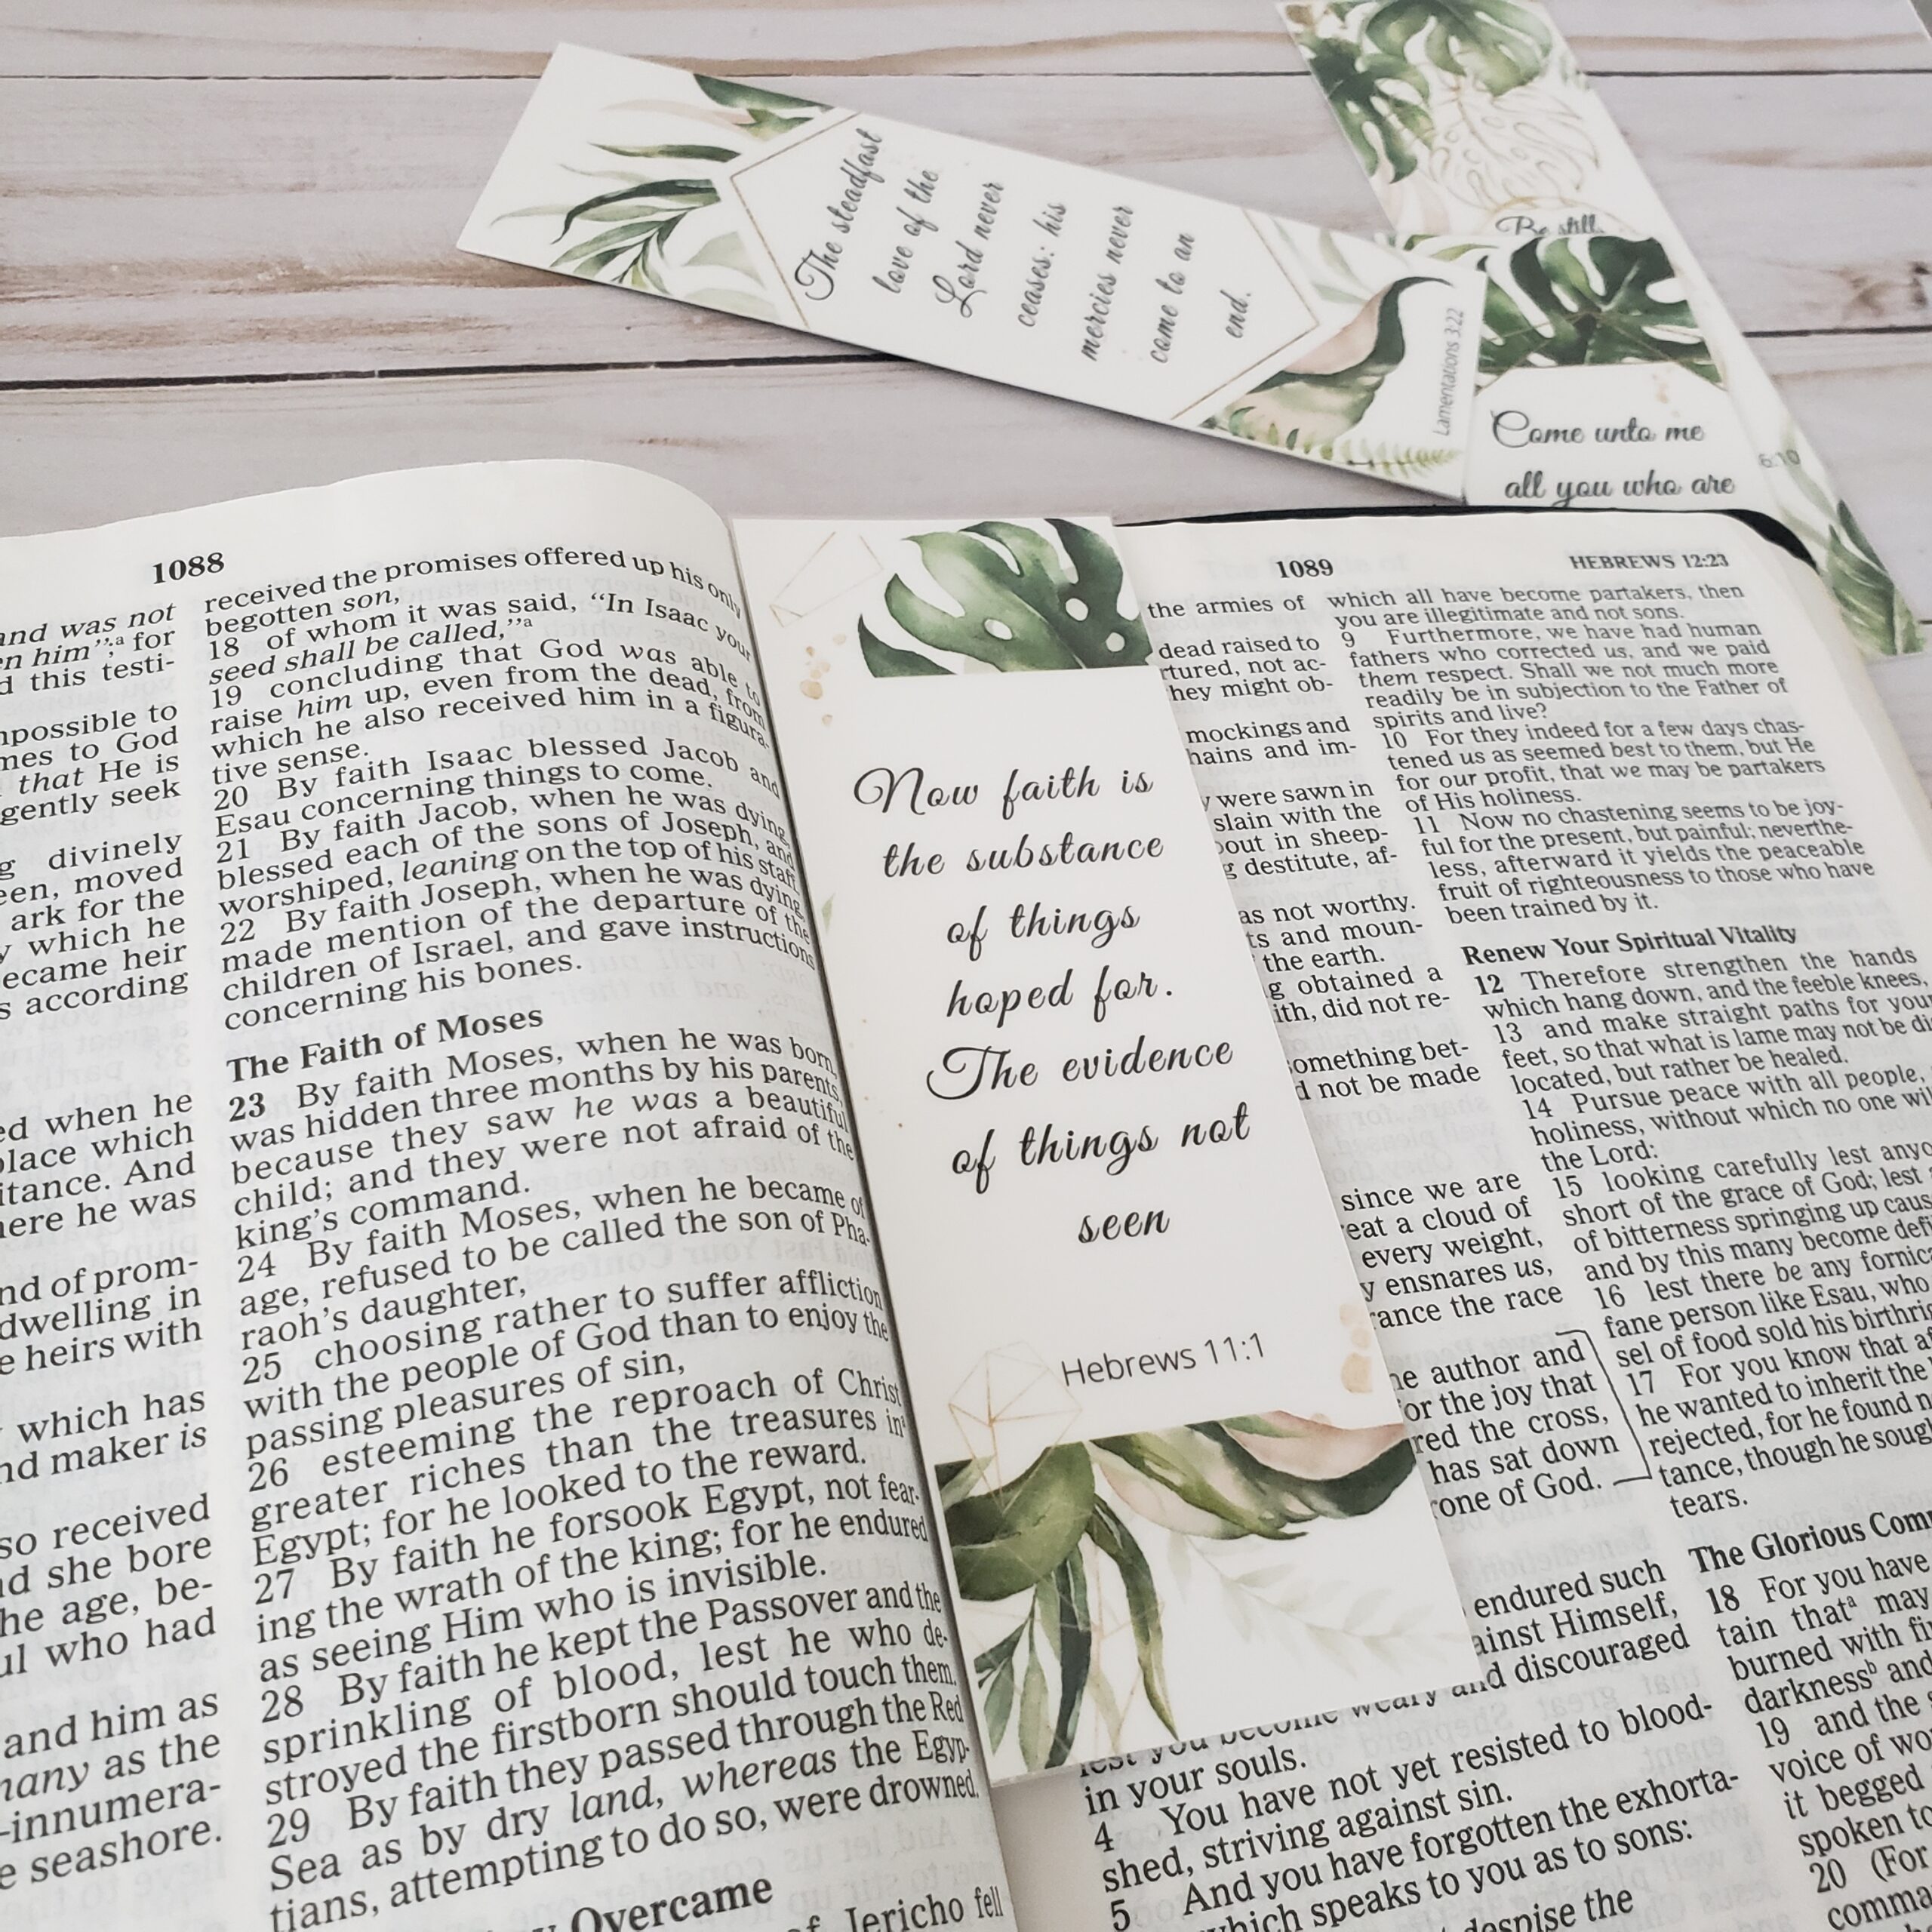 The steadfast
love of the
Lord never
ceases: his
mercies never
come to an
end.
Lamentations 3:22
Be still,
Come unto me
all you who are
6:10
1088
and was not
en him”;a for
d this testi-
mpossible to
mes to God
that He is
gently seek
g divinely
een, moved
ark for the
y which he
ecame heir
s according
ed when he
place which
itance. And
here he was
nd of prom-
dwelling in
e heirs with
which has
nd maker is
so received
d she bore
he age, be-
ul who had
and him as
many as the
-innumera-
e seashore.
received the promises offered up his only
begotten son,
18 of whom it was said, “In Isaac your
seed shall be called,”a
19 concluding that God was able to
raise him up, even from the dead, from
which he also received him in a figura-
tive sense.
20 By faith Isaac blessed Jacob and
Esau concerning things to come.
21 By faith Jacob, when he was dying,
blessed each of the sons of Joseph, and
worshiped, leaning on the top of his staff.
22 By faith Joseph, when he was dying,
made mention of the departure of the
children of Israel, and gave instructions
concerning his bones.
The Faith of Moses
23 By faith Moses, when he was born,
was hidden three months by his parents,
because they saw he was a beautiful
child; and they were not afraid of the
king's command.
24 By faith Moses, when he became of
age, refused to be called the son of Pha-
raoh's daughter,
25 choosing rather to suffer affliction
with the people of God than to enjoy the
passing pleasures of sin,
26 esteeming the reproach of Christ
greater riches than the treasures in
Egypt; for he looked to the reward.
27 By faith he forsook Egypt, not fear-
ing the wrath of the king; for he endured
as seeing Him who is invisible.
28 By faith he kept the Passover and the
sprinkling of blood, lest he who de-
stroyed the firstborn should touch them.
29 By faith they passed through the Red
Sea as by dry land, whereas the Egyp-
tians, attempting to do so, were drowned.
Overcame
of Jericho fell
Now faith is
the substance
of things
hoped for.
The evidence
of things not
seen
Hebrews 11:1
1089
HEBREWS 12:23
the armies of
dead raised to
rtured, not ac-
hey might ob-
mockings and
hains and im-
y were sawn in
slain with the
out in sheep-
g destitute, af-
as not worthy.
ts and moun-
the earth.
g obtained a
ith, did not re-
omething bet-
d not be made
since we are
eat a cloud of
every weight,
y ensnares us,
rance the race
he author and
or the joy that
red the cross,
has sat down
rone of God.
endured such
ainst Himself,
lest you become weary and discouraged
in your souls.
4 You have not yet resisted to blood-
shed, striving against sin.
5 And you have forgotten the exhorta-
which speaks to you as to sons:
despise the
which all have become partakers, then
you are illegitimate and not sons.
9 Furthermore, we have had human
fathers who corrected us, and we paid
them respect. Shall we not much more
readily be in subjection to the Father of
spirits and live?
10 For they indeed for a few days chas-
tened us as seemed best to them, but He
for our profit, that we may be partakers
of His holiness.
11 Now no chastening seems to be joy-
ful for the present, but painful; neverthe-
less, afterward it yields the peaceable
fruit of righteousness to those who have
been trained by it.
Renew Your Spiritual Vitality
12 Therefore strengthen the hands
which hang down, and the feeble knees,
13 and make straight paths for your
feet, so that what is lame may not be dis
located, but rather be healed.
14 Pursue peace with all people,
holiness, without which no one wil
the Lord:
15 looking carefully lest anyo
short of the grace of God; lest
of bitterness springing up caus
and by this many become defi
16 lest there be any fornica
fane person like Esau, who
sel of food sold his birthri
17 For you know that af
he wanted to inherit the
rejected, for he found n
tance, though he sough
tears.
The Glorious Com
18 For you have
tain thata may
burned with fi
darknessb and
19 and the
voice of wo
it begged
spoken to
20 (For
comma